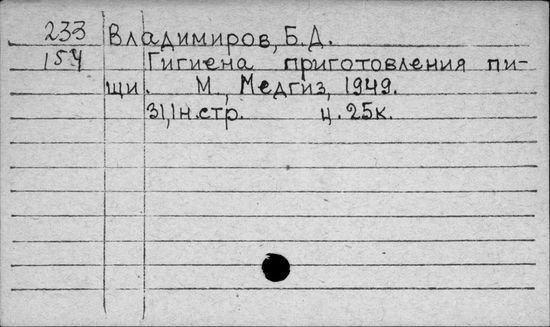 233 Владимиров, Б.Д.
154 Гигиена приготовления пи-
щи. М., Медгиз, 1949.
31,1н.стр. ц. 25к.